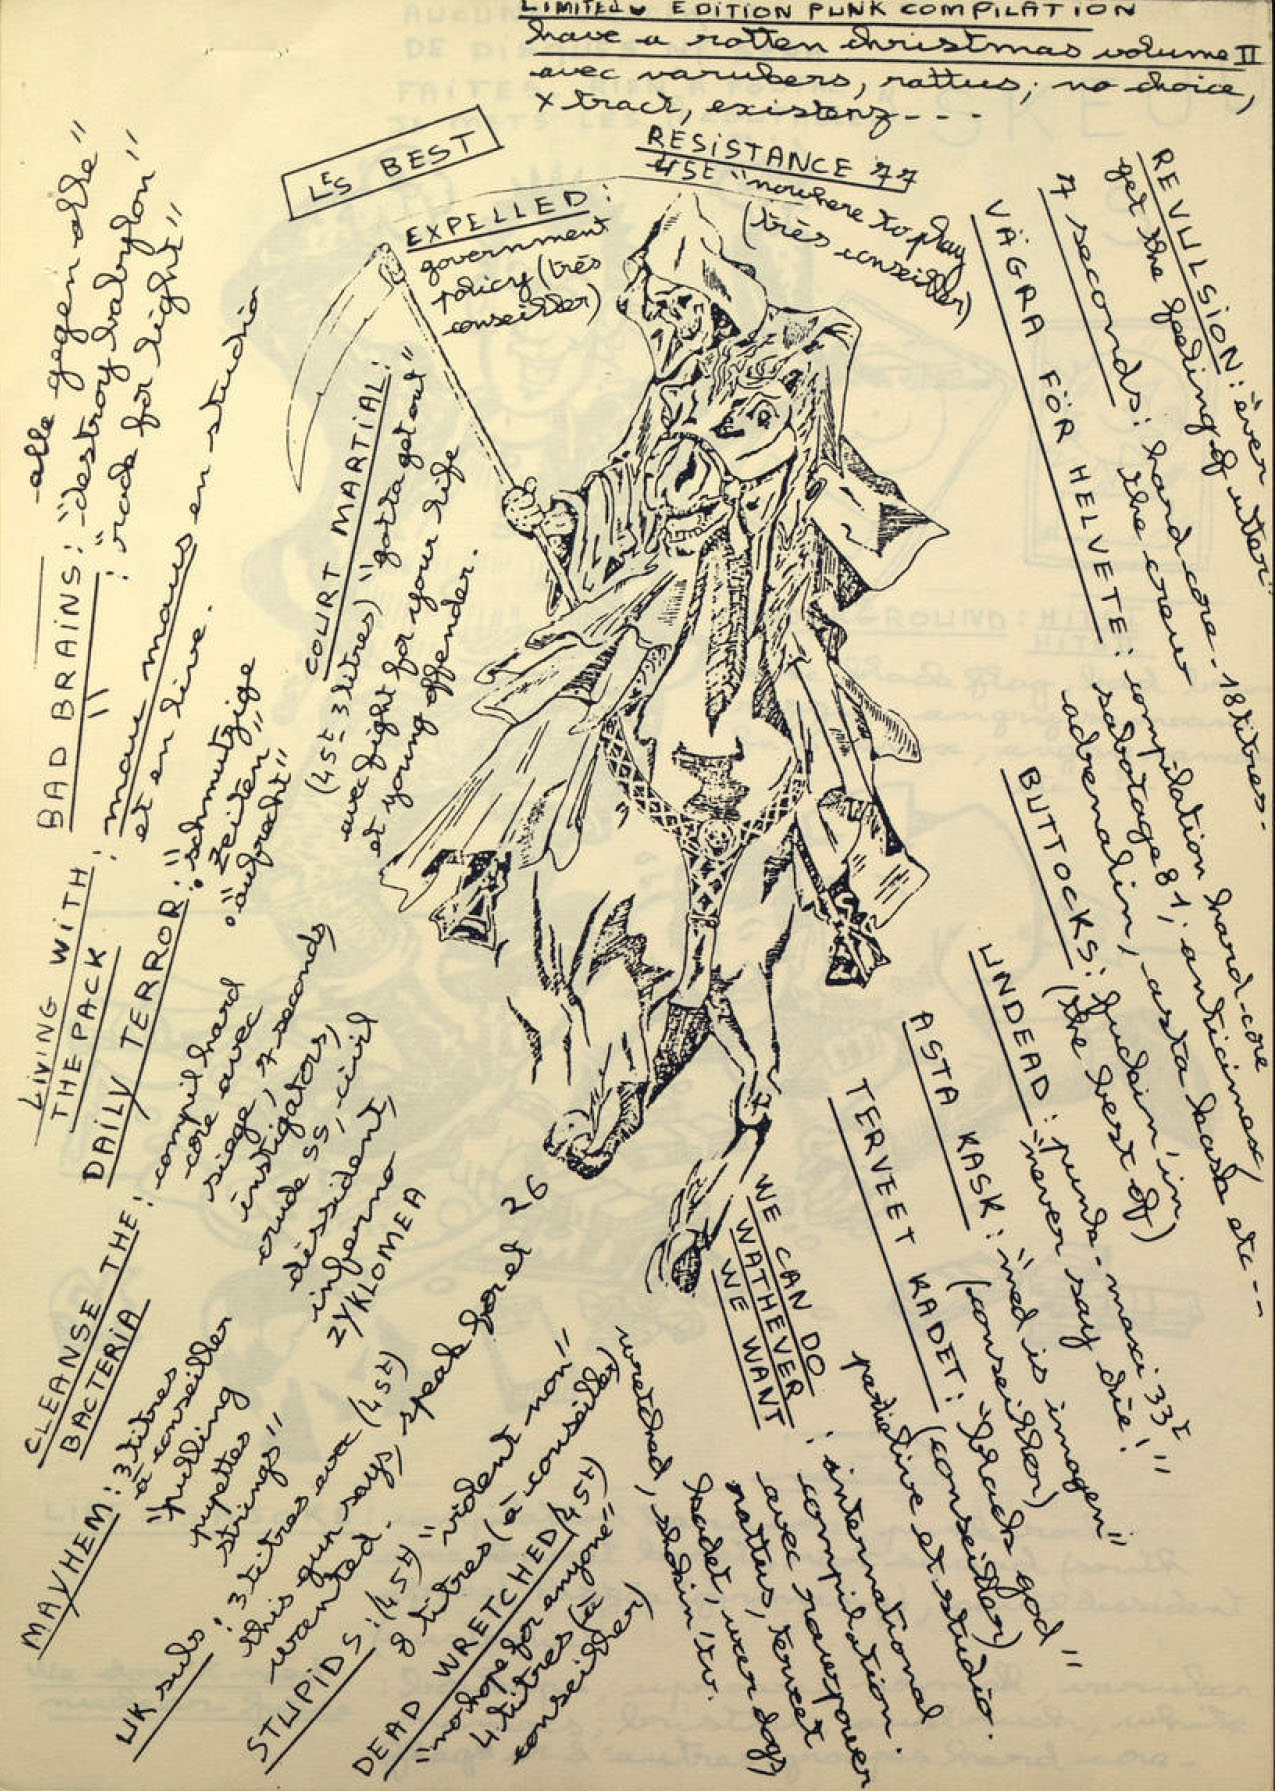 LIMITED EDITION PUNK COMPILATION
have a rotten christmas volume II
avec varukers, rattus; no choice,
x tract, existenz----
LES BEST
RESISTANCE 77
45t "nowhere to play
(très conseiller)
EXPELLED:
government
policy (très
conseiller)
COURT MARTIAL:
(45t 3 titres) "gotta get out"
avec fight for your life
et young offender.
alle gegen alle"
BAD BRAINS: "destroy babylon"
: "rode for light"
LIVING WITH
THE PACK
: mau maus en studio
et en live.
DAILY TERROR: "schmutzige
zeiten"
"aufrecht"
CLEANSE THE
BACTERIA
: compil hard
core avec
siege, 7 seconds,
instigators,
crude ss, civil
dissident,
inferno
ZYKLOMEA
MAYHEM: 3 titres
à conseiller
"pulling
puppettes
strings"
UK subs: 3 titres avec (45t)
this gun says, speak for et 26
wanted.
STUPIDS: (45t) "violent non"
8 titres (à conseiller)
DEAD WRETCHED (45t)
"no hope for anyone"
4 titres (à
conseiller)
REVULSION: "ever
get the feeling of utter
7 seconds: hard core - 18 titres.
the crew
VÄGRA FÖR HELVETE: compilation hard-core
sabotage 81, anticimex,
adrenalin, asta kask etc --
BUTTOCKS: fuckin' in
(the best of)
UNDEAD: punk - maxi 33t
"never say die!"
ASTA KASK: "med is imagen"
(conseiller)
TERVEET KADET: "black god"
(conseiller)
partie live et studio.
WE CAN DO
WATHEVER
WE WANT
: international
compilation.
avec raw power
rattus, terveet
kadet, war dogs
wretched, shitin' tv.